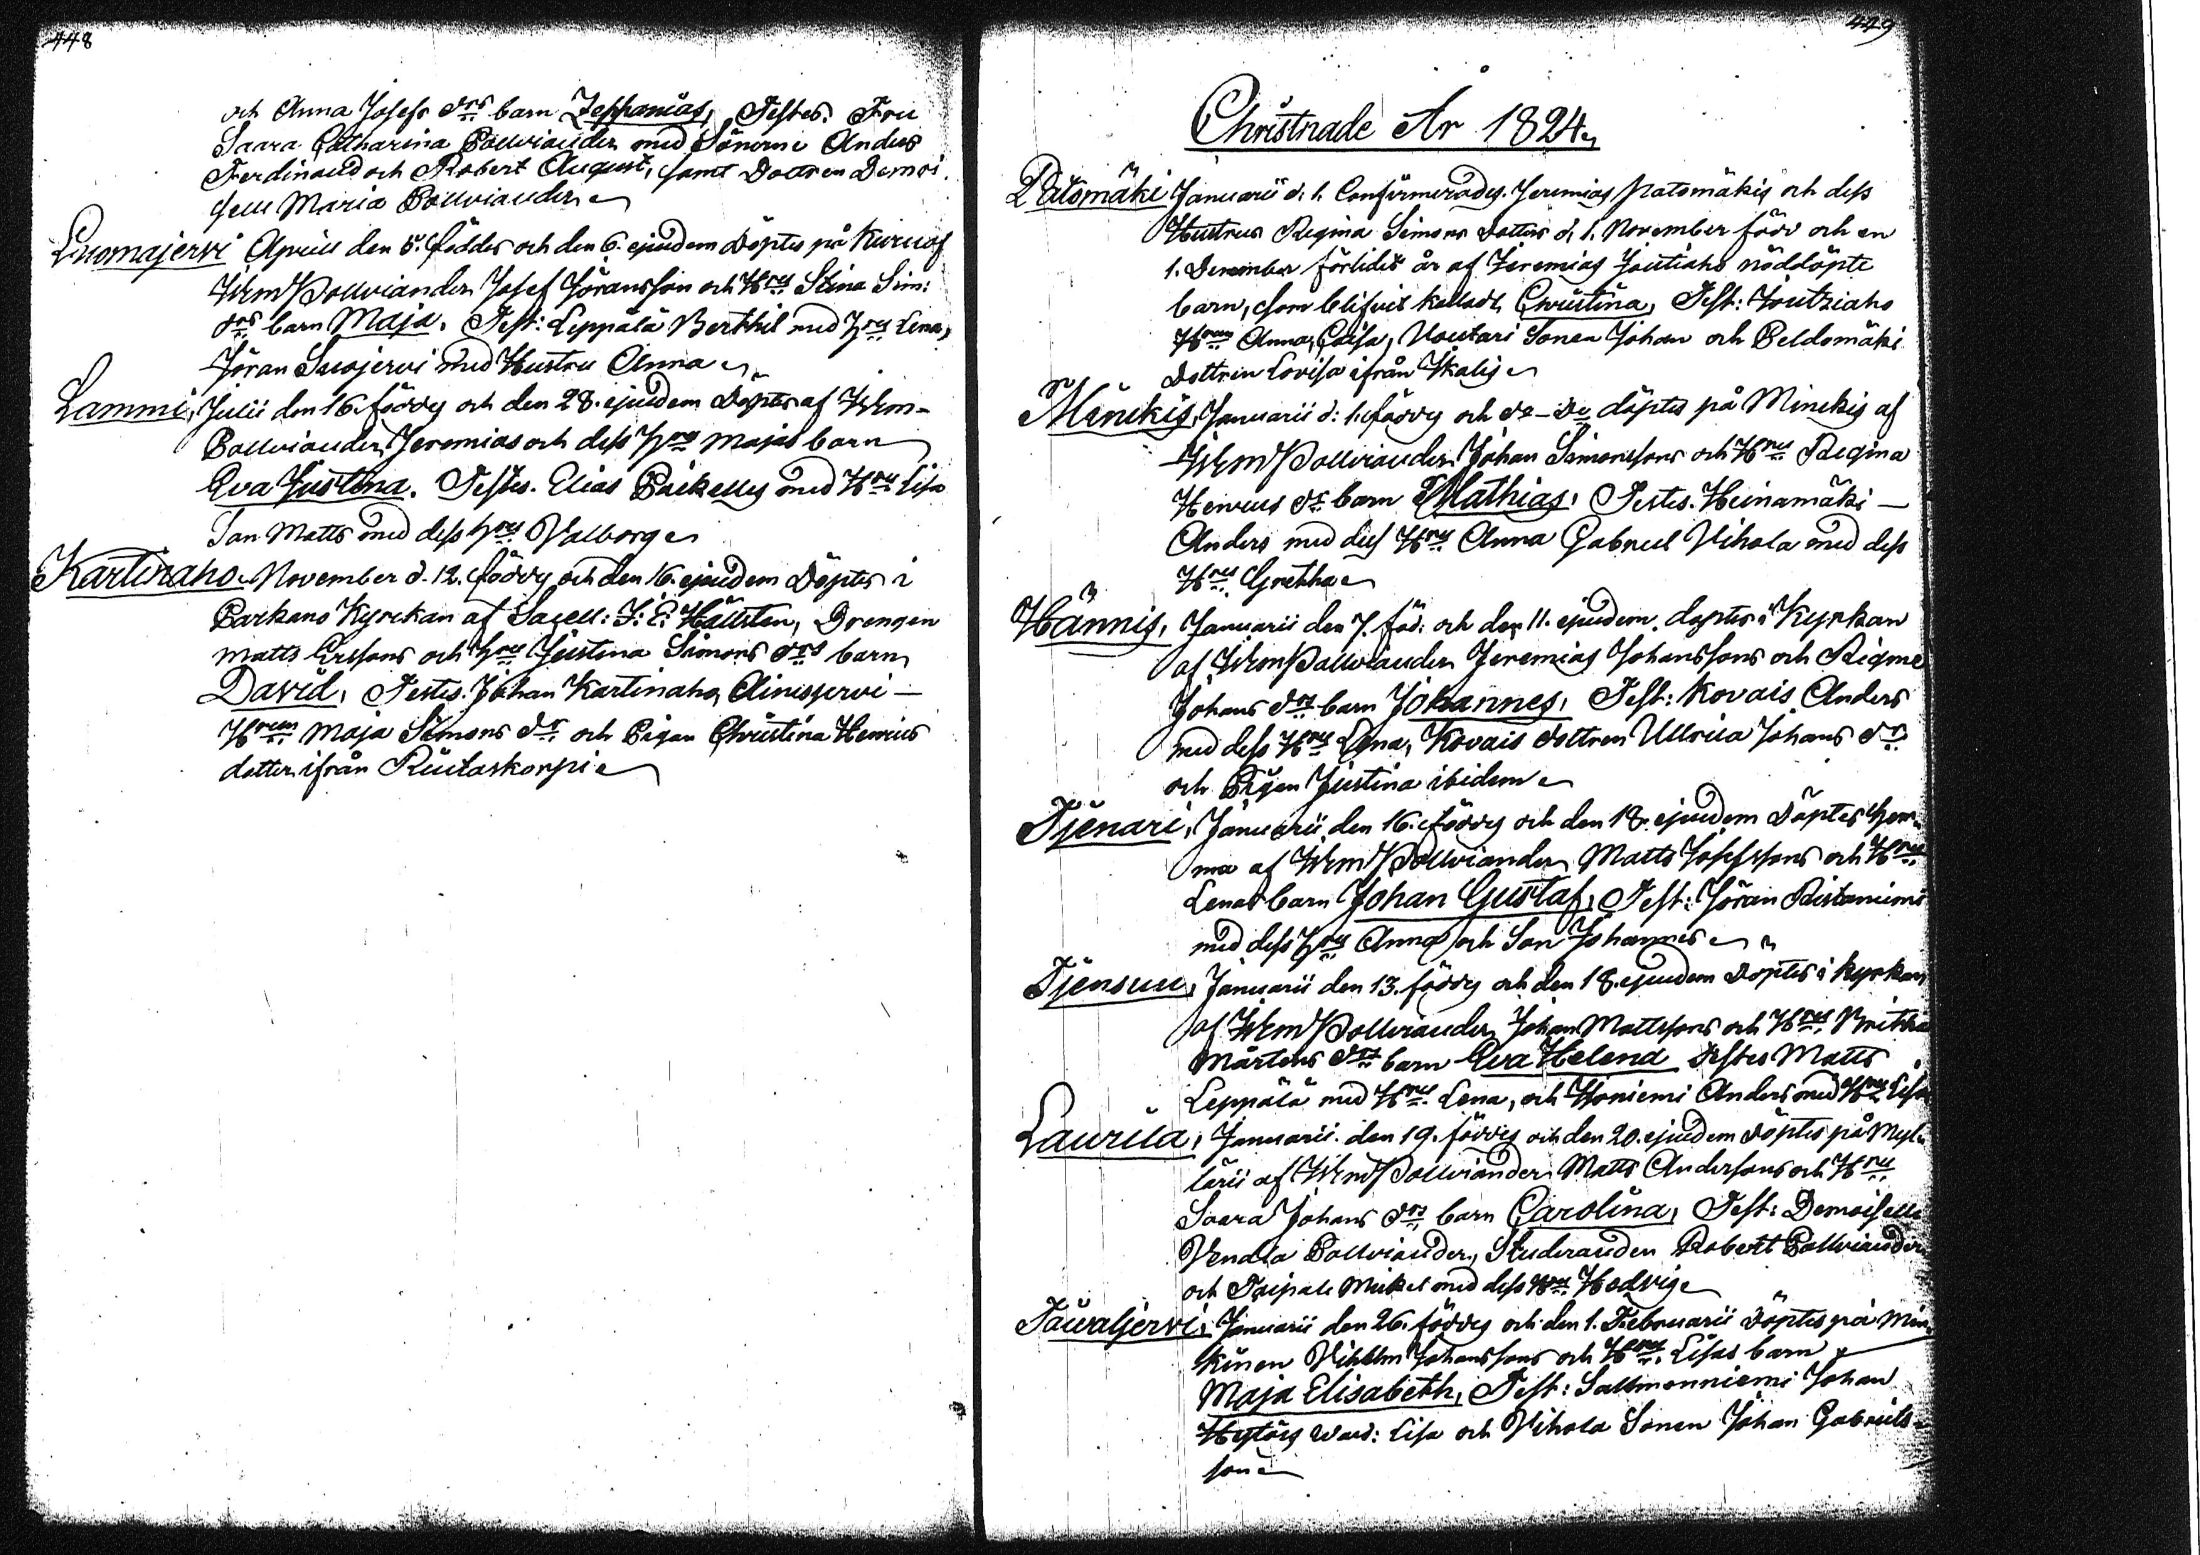 448
och Anna Josefs drs barn Zephanias, Testes. Fru
Saara Catharina Pallviander med Sönerne Anders
Ferdinand och Robert August, samt Dottren Demoi
selle Maria Pallviander
Luomajervi Aprill den 5. föddes och den 6. ejusdem Döptes på
W Pallviander Josef Jöransson och Hrus Stina Sim:
drs barn Maja. Test: Leppälä Berthil med Hru Lena,
Jöran Suojervi med Hustru Anna
Lammi, Julii den 16. föddes och den 28. ejusdem Döptes af
Pallviander Jeremias och dess Hrus Majas barn
Eva Justina. Testes. Elias med Hru Lisa
Jan Matts med dess Hru Valborg
Kartinaho November d. 12. föddes och den 16. ejusdem Döptes i
Parkano Kyrckan af Sacell: J: E: Hällsten, Drengen
Matts Erssons och Hrus Justina Simons drs barn
David, Testes. Johan Kartinaho,
Hrun Maja Simons dr och Pigan Christina Henrics
dotter ifrån
449
Christnade År 1824
Patomäki Januarii d. 1. Confirmerades Jeremias Patomäkis och dess
Hustrus Regina Simons dotters d. 1. November född och en
1. December förlidit år af Jeremias nöddöpte
barn, som blifvit kalladt Christina, Test:
Hrun Anna Caisa, Sonen Johan och
Dottren Lovisa ifrån Ikalis
Minckis, Januarii d: 1. föddes och do - do döptes på Minckis af
W Pallviander Johan Simonssons och Hrus Regina
Henrics dr barn Mathias, Testes. Heinamäki
Anders med dess Hru Anna Gabriel Vihola med dess
Hru Gretha
Hännis, Januarii den 7. föd: och den 11. ejusdem döptes i Kyrkan
af W Pallviander Jeremias Johanssons och
Johans drs barn Johannes, Test: Kovais Anders
med dess Hru Lena, Kovais dottren Ullrica Johans dr
och Pigan Justina ibidem
Januarii den 16. föddes och den 18. ejusdem Döptes hem
ma af W Pallviander Matts Josefssons och Hrus
Lenas barn Johan Gustaf, Test: Jöran Ristaniemi
med dess Hru Anna och Son Johannes
Januarii den 13. föddes och den 18. ejusdem Döptes i Kyrkan
af W Pallviander Johan Mattssons och Hrus Britha
Mårtens drs barn Eva Helena Testes Matts
Leppälä med Hru Lena, och Anders med Hru Lisa
Laurila, Januarii den 19. föddes och den 20. ejusdem Döptes på
af W Pallviander Matts Anderssons och Hrus
Saara Johans drs barn Carolina, Test: Demoiselle
Pallviander, Studeranden Robert Pallviander
och Mickel med dess Hru Hedvig
Januarii den 26. föddes och den 1. Februarii Döptes på Min
kinen Vilhelm Johanssons och Hrus Lisas barn
Maja Elisabeth, Test: Sallmenniemi Johan
Lisa och Vihola Sonen Johan Gabriels
son